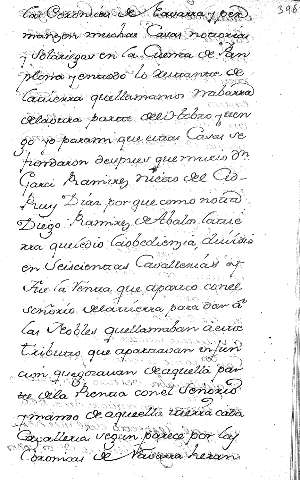 396
las Coronicas de Navarra y per
manezen muchas Casas notorias
y Solariegas en la Cuenca de Pan
plona y en todo lo restante de
la tierra que llamamos nabarra
de la otra parte del hebro y ten
go yo para mi que estas Casas se
fundaron despues que murio Dn
Garci Ramirez nieto del Cid
Ruy Diaz por que como
Diego Ramirez de Abalos la tie
rra que dio la obedienzia, dividio
en Seiscientas Cavallerias
fue la Renta que aparto con el
señorio de la tierra, para dar a
los Nobles que llamaban
tributo, que apartavan en fun
cion que gozavan de aquella par
te de la Renta con el Señorio
y mando de aquella tierra cada
Cavalleria segun parece por las
Coronicas de Navarra heran